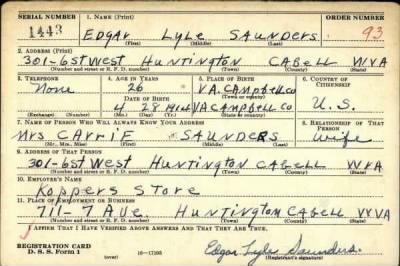 SERIAL NUMBER 1. NAME (Print) ORDER NUMBER
1443 EDGAR LYLE SAUNDERS 93
(First) (Middle) (Last)
2. ADDRESS (Print)
301-6ST WEST HUNTINGTON CABELL WVA
(Number and street or R. F. D. number) (Town) (County) (State)
3. TELEPHONE 4. AGE IN YEARS 5. PLACE OF BIRTH 6. COUNTRY OF CITIZENSHIP
None 26 VA. CAMPBELL CO
DATE OF BIRTH (Town or county)
4 28 VA CAMPBELL CO U.S.
(Exchange) (Number) (Mo.) (Day) (Yr.) (State or country)
7. NAME OF PERSON WHO WILL ALWAYS KNOW YOUR ADDRESS 8. RELATIONSHIP OF THAT PERSON
MRS CARRIE SAUNDERS Wife
(Mr., Mrs., Miss) (First) (Middle) (Last)
9. ADDRESS OF THAT PERSON
301-6ST WEST HUNTINGTON CABELL WVA
(Number and street or R. F. D. number) (Town) (County) (State)
10. EMPLOYER'S NAME
KOPPERS STORE
11. PLACE OF EMPLOYMENT OR BUSINESS
711-7 AVE HUNTINGTON CABELL WVA
(Number and street or R. F. D. number) (Town) (County) (State)
I AFFIRM THAT I HAVE VERIFIED ABOVE ANSWERS AND THAT THEY ARE TRUE.
REGISTRATION CARD
D. S. S. Form 1 (over) 16-17105 Edgar Lyle Saunders
(Registrant's signature)